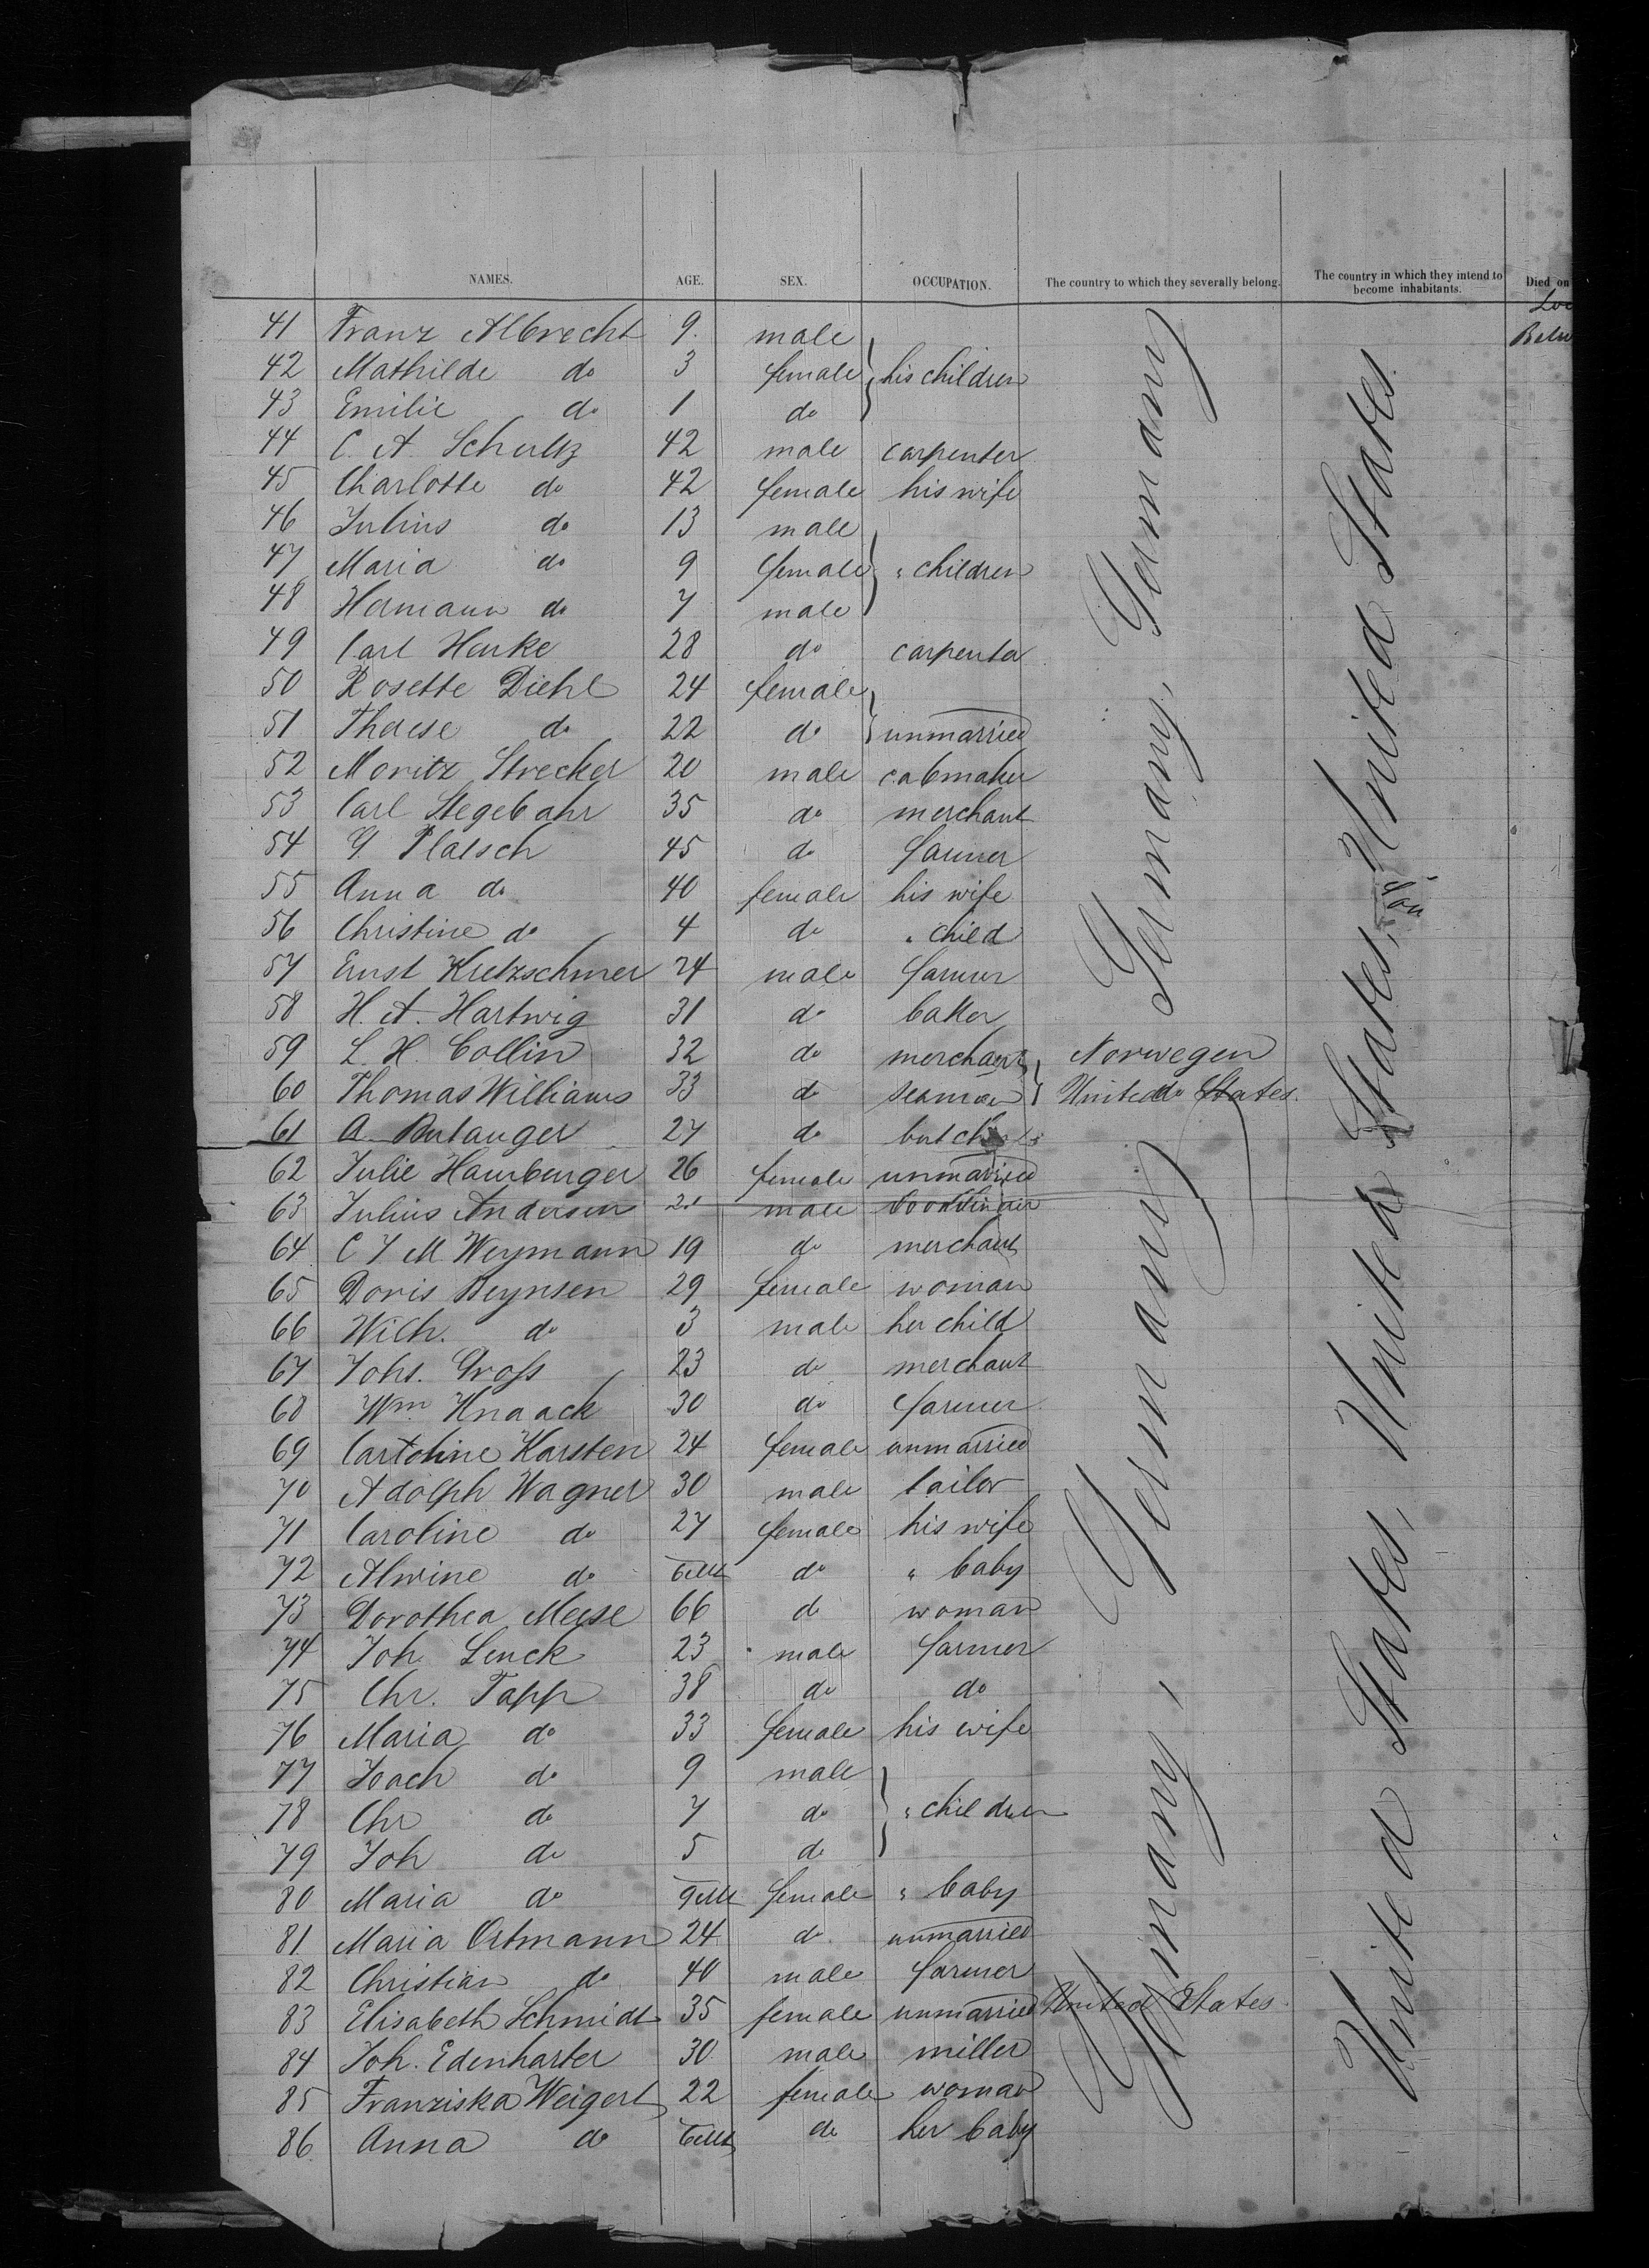 NAMES. AGE. SEX. OCCUPATION. The country to which they severally belong. The country in which they intend to become inhabitants. Died on
41 Franz Albrecht 9. male
42 Mathilde do 3 female his children
43 Emilie do 1 do
44 C. A. Schultz 42 male carpenter
45 Charlotte do 42 female his wife
46 Julius do 13 male
47 Maria do 9 female " children
48 Hermann do 7 male
49 Carl Henke 28 do carpenter
50 Rosette Diehl 24 female
51 Therese do 22 do unmarried
52 Moritz Strecker 20 male cabmaker
53 Carl Stegebahr 35 do merchant
54 G. Platsch 45 do farmer
55 Anna do 40 female his wife
56 Christine do 4 do " child
57 Ernst Kretzschmer 24 male farmer
58 H. A. Hartwig 31 do baker
59 L. H. Collin 32 do merchant Norwegen
60 Thomas Williams 33 do seaman United States.
61 A. 27 do butcher
62 Julie Hamburger 26 female unmarried
63 Julius Andersen male
64 C J M Weymann 19 do merchant
65 Doris Reynsen 29 female woman
66 Wilh. do 3 male her child
67 Johs. Gross 23 do merchant
68 Wm Knaack 30 do farmer
69 Karsten 24 female unmarried
70 Adolph Wagner 30 male tailor
71 Caroline do 27 female his wife
72 Alwine do do " baby
73 Dorothea Meese 66 do woman
74 Joh. Lenck 23 male farmer
75 Chr. Tapp 38 do do
76 Maria do 33 female his wife
77 Joach do 9 male
78 Chr do 7 do " children
79 Joh do 5 do
80 Maria do female " baby
81 Maria Ortmann 24 do unmarried
82 Christian do 40 male farmer
83 Elisabeth Schmidt 35 female unmarried United States.
84 Joh. Edenharter 30 male miller
85 Franziska Weigert 22 female woman
86 Anna do do her baby
Germany, Germany, Germany, Germany
United States, United States, United States